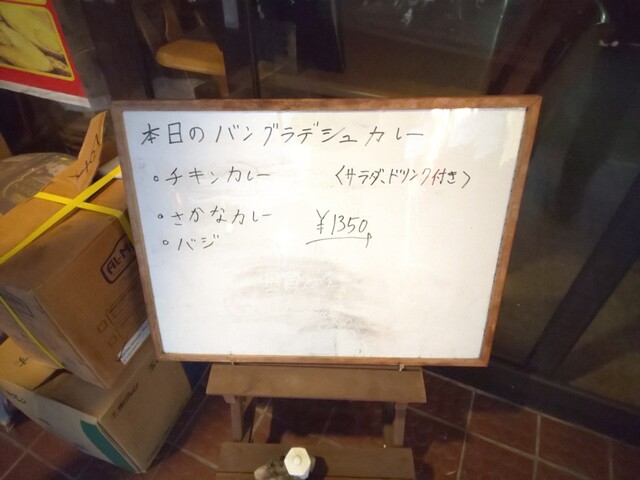 本日のバングラデシュカレー
・チキンカレー 〈サラダ、ドリンク付き〉
・さかなカレー ¥1350
・バジ